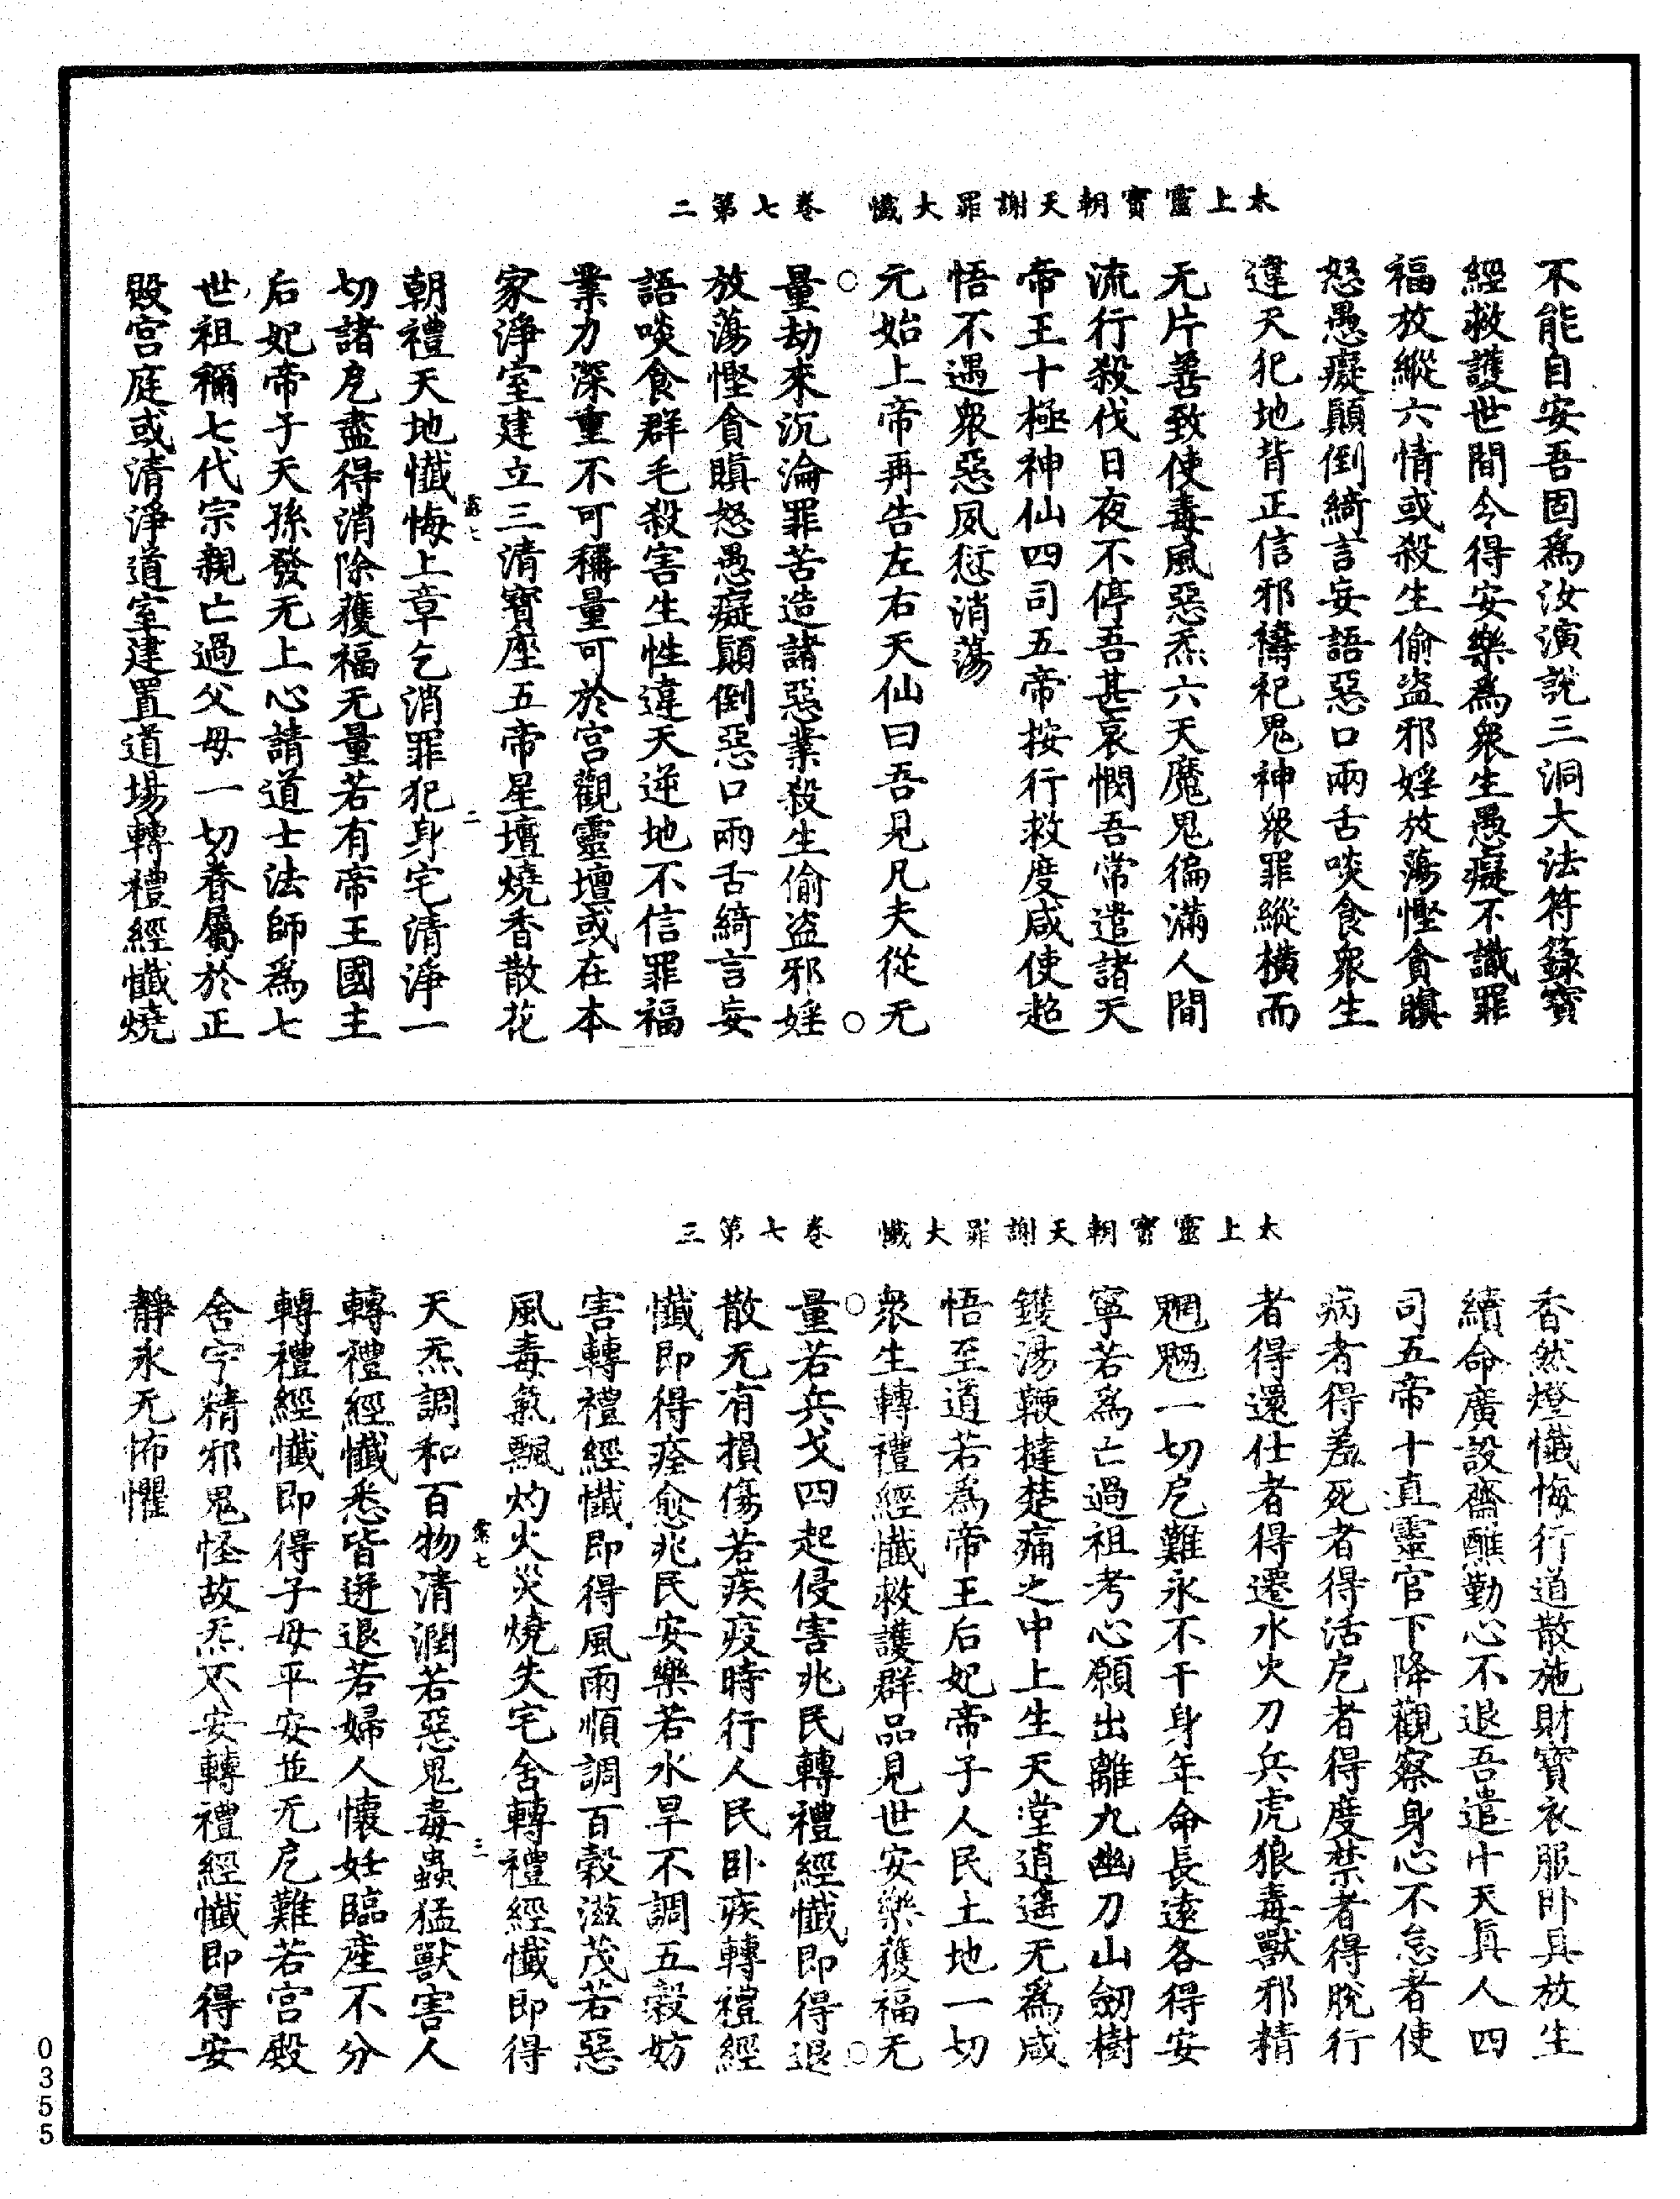 太上靈寶朝天謝罪大懺　卷七第二
不能自安吾固爲汝演說三洞大法符籙寶
經救護世間令得安樂爲衆生愚癡不識罪
福放縱六情或殺生偷盜邪婬放蕩慳貪瞋
怒愚癡顛倒綺言妄語惡口兩舌啖食衆生
違天犯地背正信邪禱祀鬼神衆罪縱橫而
无片善致使毒風惡炁六天魔鬼徧滿人間
流行殺伐日夜不停吾甚哀憫吾常遣諸天
帝王十極神仙四司五帝按行救度咸使超
悟不遇衆惡夙愆消蕩
元始上帝再告左右天仙曰吾見凡夫從无
量劫來沉淪罪苦造諸惡業殺生偷盜邪婬
放蕩慳貪瞋怒愚癡顛倒惡口兩舌綺言妄
語啖食群毛殺害生性違天逆地不信罪福
業力深重不可稱量可於宮觀靈壇或在本
家淨室建立三清寶座五帝星壇燒香散花
二
朝禮天地懺悔上章乞消罪犯身宅清淨一
切諸戹盡得消除獲福无量若有帝王國主
后妃帝子天孫發无上心請道士法師爲七
世祖稱七代宗親亡過父母一切眷屬於正
殿宮庭或清淨道室建置道場轉禮經懺燒
太上靈寶朝天謝罪大懺　卷七第三
香然燈懺悔行道散施財寶衣服卧具放生
續命廣設齋醮勤心不退吾遣中天真人四
司五帝十直靈官下降觀察身心不怠者使
病者得差死者得活戹者得度禁者得脫行
者得還仕者得遷水火刀兵虎狼毒獸邪精
魍魎一切戹難永不干身年命長遠各得安
寧若爲亡過祖考心願出離九幽刀山劒樹
鑊湯鞭撻楚痛之中上生天堂逍遙无爲咸
悟至道若爲帝王后妃帝子人民土地一切
衆生轉禮經懺救護群品見世安樂獲福无
量若兵戈四起侵害兆民轉禮經懺即得退
散无有損傷若疾疫時行人民卧疾轉禮經
懺即得痊愈兆民安樂若水旱不調五穀妨
害轉禮經懺即得風雨順調百穀滋茂若惡
風毒氣飄灼火災燒失宅舍轉禮經懺即得
三
天炁調和百物清潤若惡鬼毒蟲猛獸害人
轉禮經懺悉皆迸退若婦人懷妊臨産不分
轉禮經懺即得子母平安並无戹難若宮殿
舍宇精邪鬼怪故炁不安轉禮經懺即得安
靜永无怖懼
0355